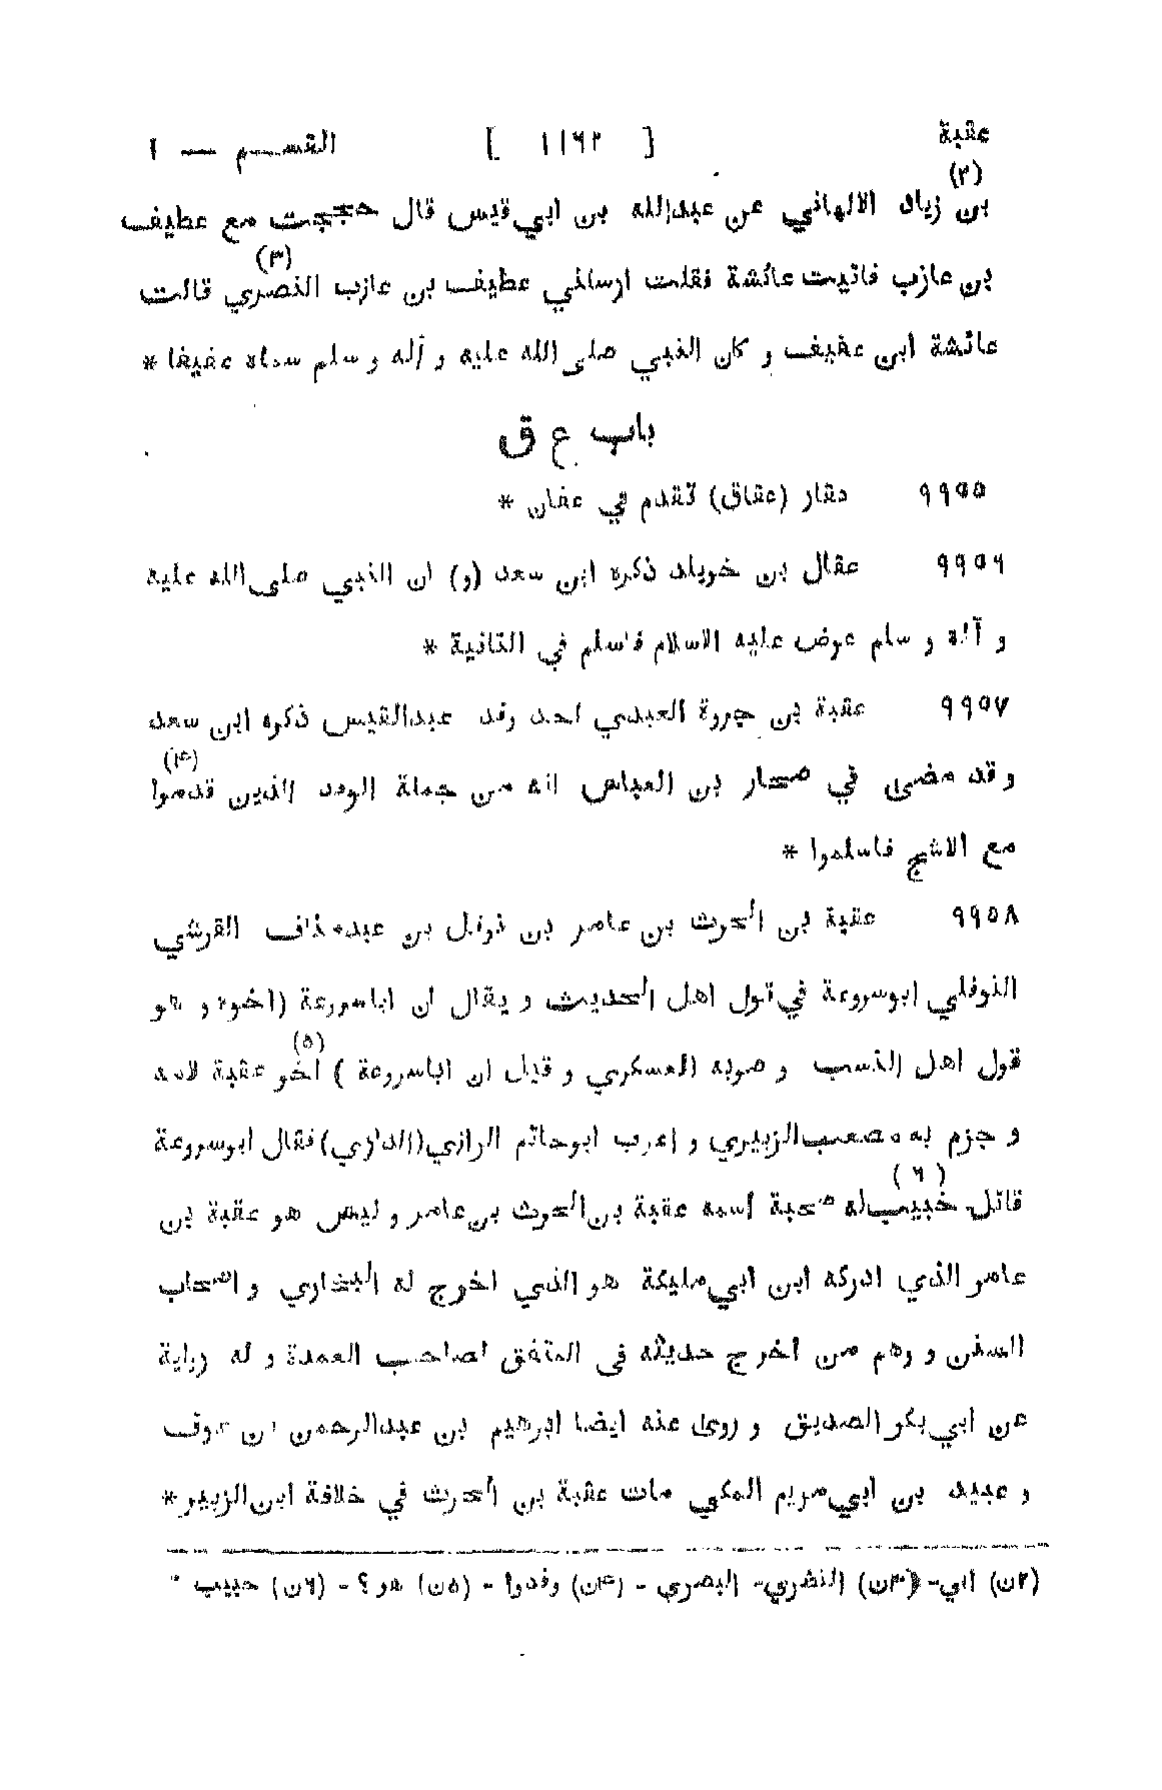 عقبة [ ١١٦٢ ] القسم — ١
(٢)
بن زياد الالهاني عن عبدالله بن ابي قيس قال حججت مع عطيف
(٣)
بن عازب فاتيت عائشة فقلت ارسلني عطيف بن عازب النصري قالت
عائشة ابن عفيف و كان النبي صلى الله عليه و آله و سلم سماه عفيفا *
باب ع ق
٩٩٥٥ دقار (عقاق) تقدم في عفان *
٩٩٥٦ عقال بن خويلد ذكره ابن سعد (و) ان النبي صلى الله عليه
و آله و سلم عرض عليه الاسلام فاسلم في الثانية *
٩٩٥٧ عقبة بن جروة العبدي احد وفد عبدالقيس ذكره ابن سعد
(۴)
و قد مضى في صحار بن العباس انه من جملة الوفد الذين قدموا
مع الاشج فاسلموا *
٩٩٥٨ عقبة بن الحرث بن عامر بن نوفل بن عبدمناف القرشي
النوفلي ابوسروعة في قول اهل الحديث و يقال ان اباسروعة (اخوه و هو
(٥)
قول اهل النسب و صوبه العسكري و قيل ان اباسروعة ) اخو عقبة لامه
و جزم به مصعب الزبيري و اغرب ابوحاتم الرازي (الداري) فقال ابوسروعة
(٦)
قاتل خبيب له صحبة اسمه عقبة بن الحرث بن عامر و ليس هو عقبة بن
عامر الذي ادركه ابن ابي مليكة هو الذي اخرج له البخاري و اصحاب
السنن و وهم من اخرج حديثه في المتفق لصاحب العمدة و له رواية
عن ابي بكر الصديق و روى عنه ايضا ابرهيم بن عبدالرحمن بن عوف
و عبيد بن ابي مريم المكي مات عقبة بن الحرث في خلافة ابن الزبير *
(٢ن) ابي - (٣ن) النشري - البصري - (۴ن) وفدوا - (٥ن) هو ؟ - (٦ن) حبيب *